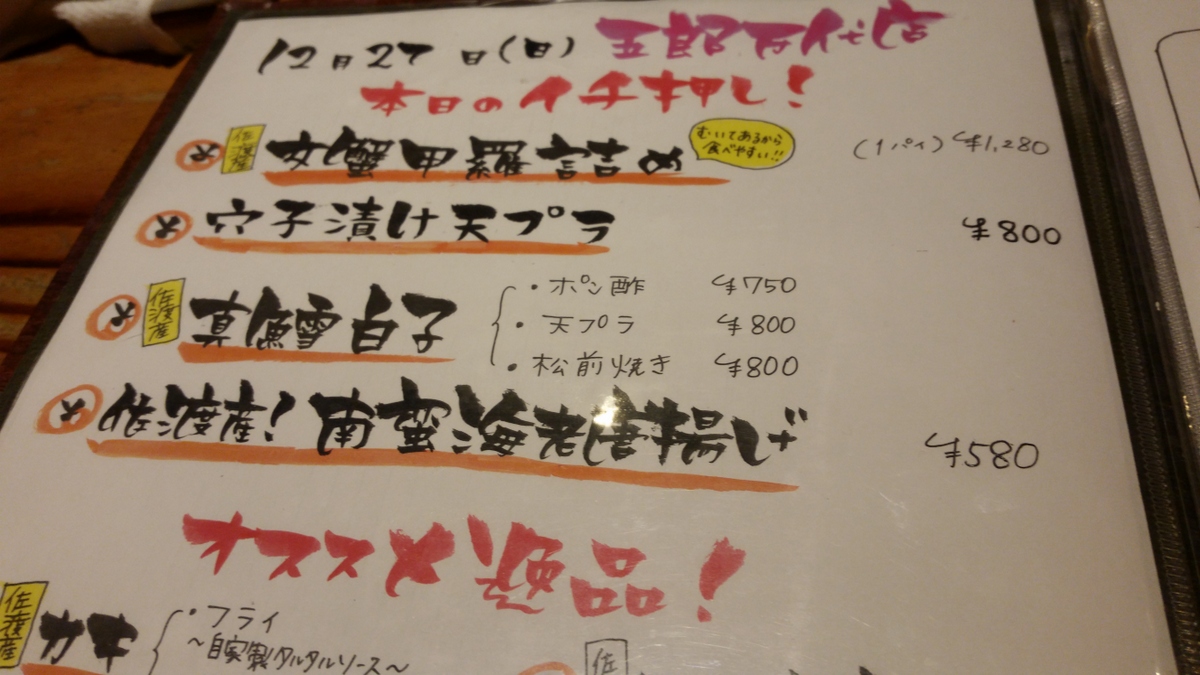 12月27日(日) 五郎万代店
本日のイチ押し!
佐渡産 女蟹甲羅詰め むいてあるから食べやすい!! (1パイ) ¥1,280
穴子漬け天プラ ¥800
佐渡産 真鱈白子
・ポン酢 ¥750
・天プラ ¥800
・松前焼き ¥800
佐渡産! 南蛮海老唐揚げ ¥580
オススメ逸品!
佐渡産 カキ
・フライ
〜自家製タルタルソース〜
佐